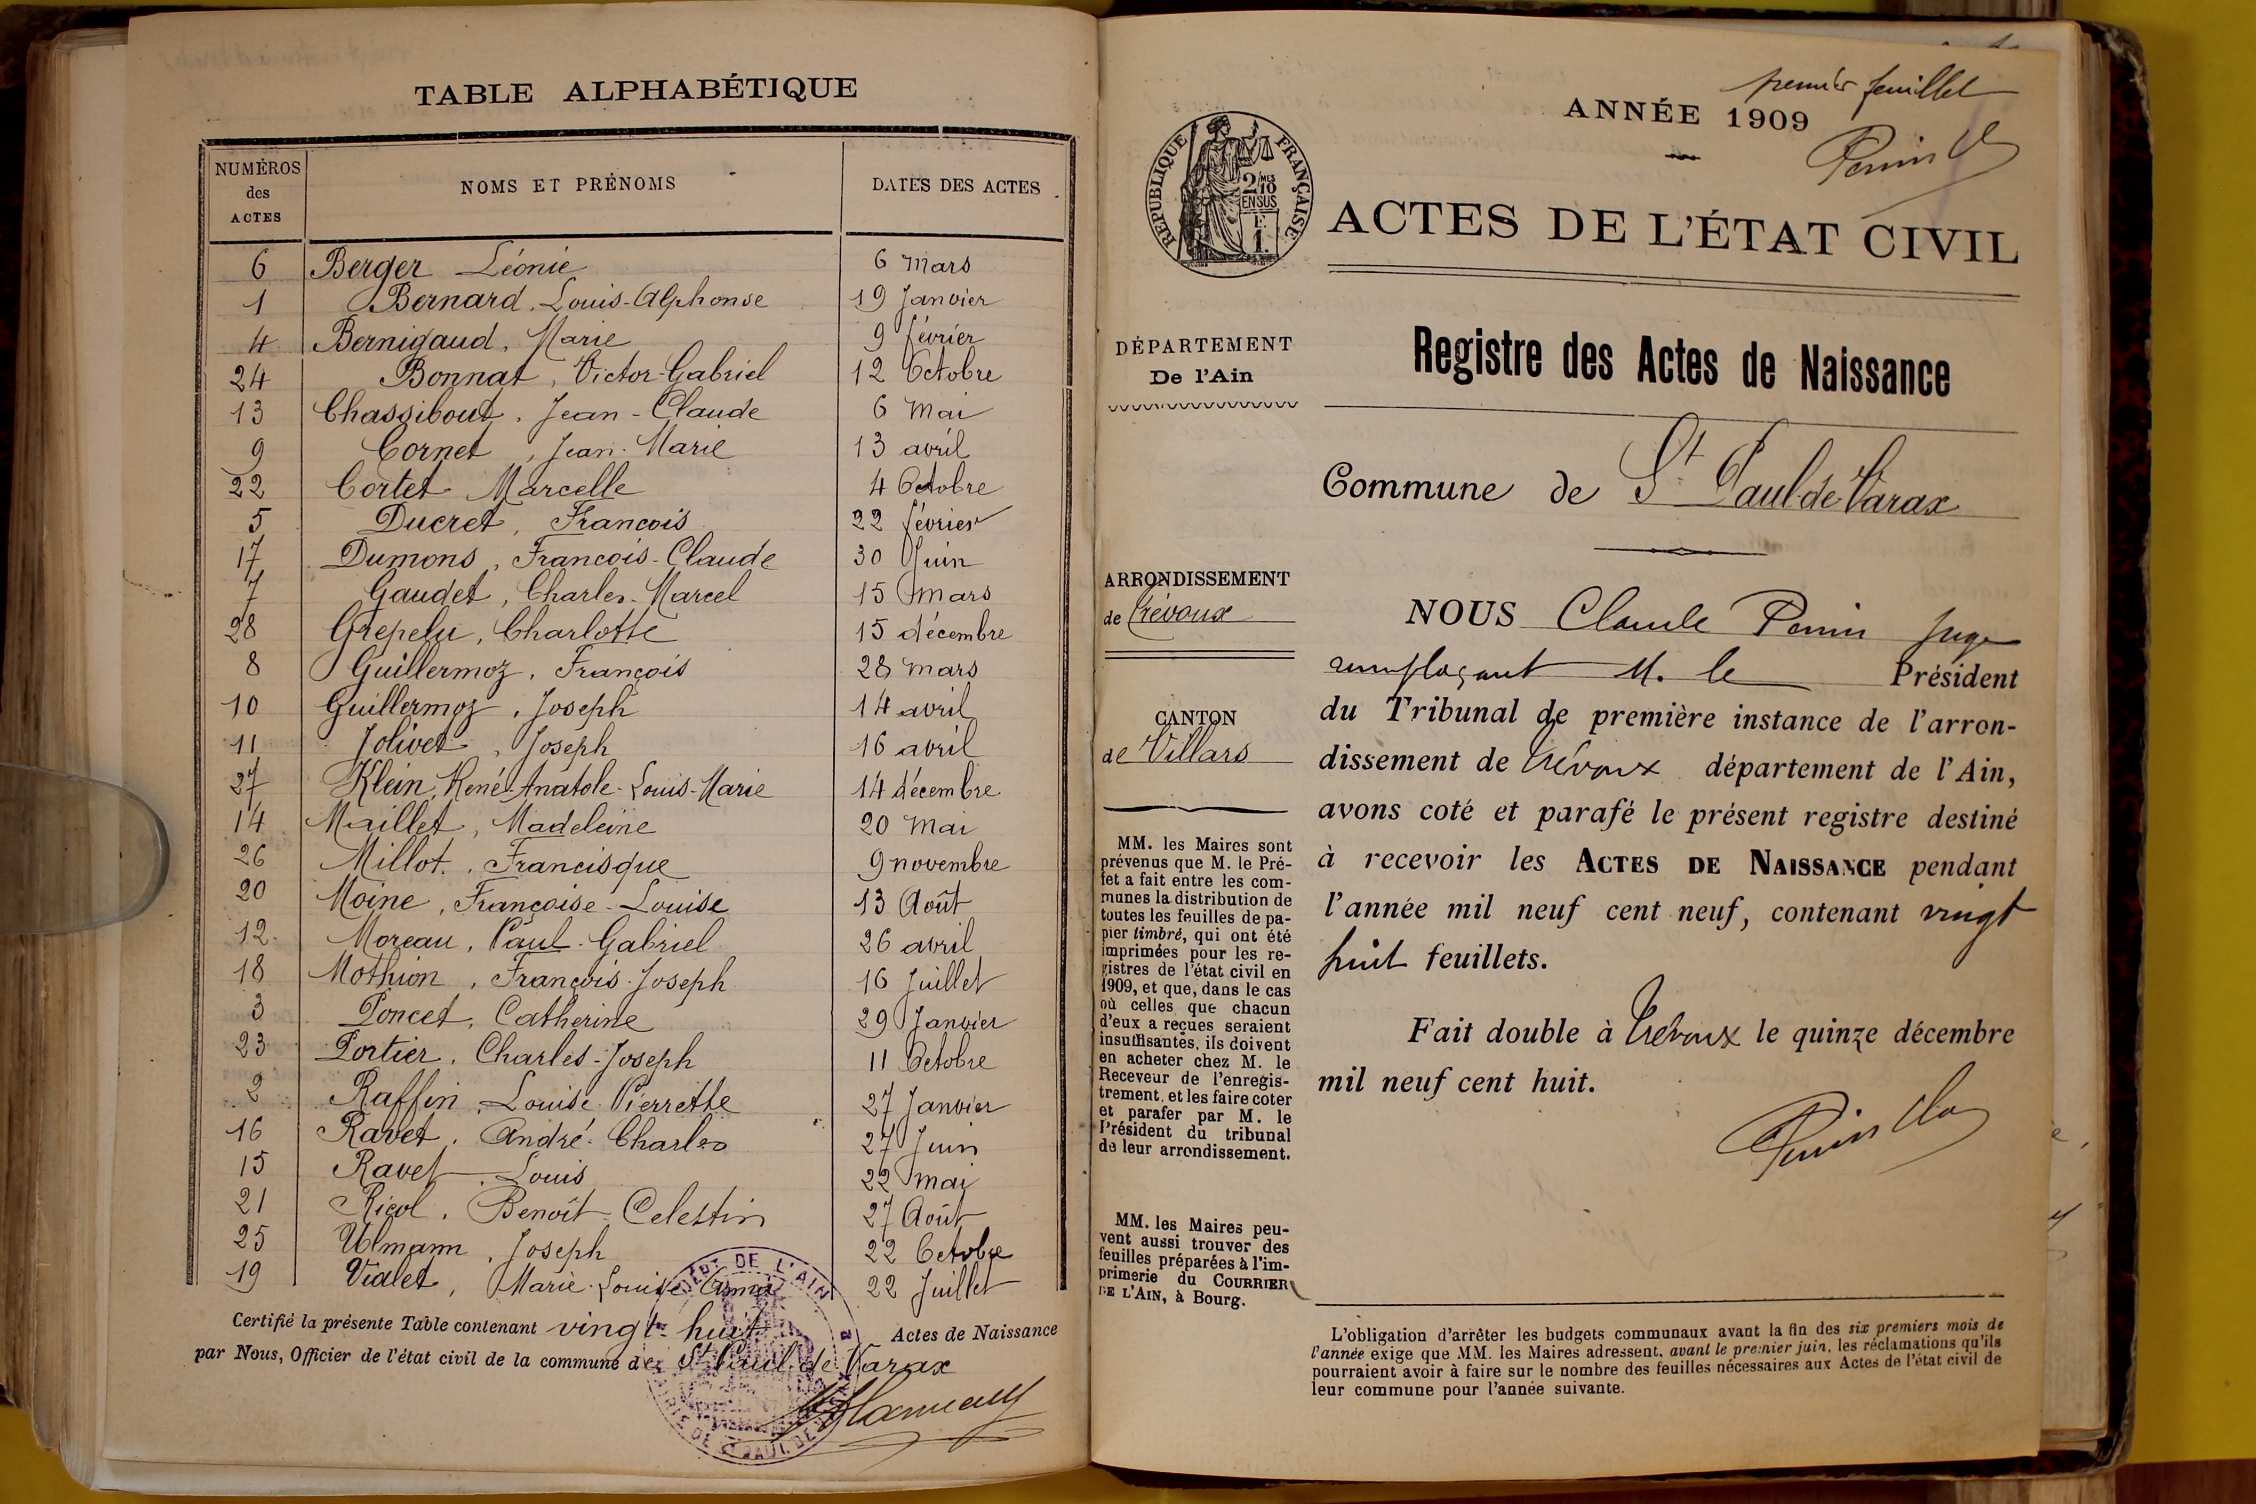 TABLE ALPHABÉTIQUE
NUMÉROS des ACTES
NOMS ET PRÉNOMS
DATES DES ACTES
6 Berger Léonie 6 Mars
1 Bernard, Louis-Alphonse 19 Janvier
4 Bernigaud, Marie 9 février
24 Bonnat, Victor-Gabriel 12 Octobre
13 Chassibout, Jean-Claude 6 Mai
9 Cornet, Jean-Marie 13 avril
22 Cortet Marcelle 4 Octobre
5 Ducret, Francois 22 février
17 Dumons, Francois-Claude 30 Juin
7 Gaudet, Charles-Marcel 15 Mars
28 Grepelu, Charlotte 15 décembre
8 Guillermoz, François 28 Mars
10 Guillermoz, Joseph 14 avril
11 Jolivet, Joseph 16 avril
27 Klein, René-Anatole-Louis-Marie 14 décembre
14 Maillet, Madeleine 20 Mai
26 Millot, Francisque 9 novembre
20 Moine, Françoise-Louise 13 Août
12 Moreau, Paul-Gabriel 26 avril
18 Mothion, François-Joseph 16 Juillet
3 Poncet, Catherine 29 Janvier
23 Portier, Charles-Joseph 11 Octobre
2 Raffin, Louise Pierrette 27 Janvier
16 Ravet, André-Charles 27 Juin
15 Ravet, Louis 22 Mai
21 Ricol, Benoît-Celestin 27 Août
25 Ulmann, Joseph 22 Octobre
19 Vialet, Marie-Louise 22 Juillet
Certifié la présente Table contenant vingt-huit Actes de Naissance
par Nous, Officier de l'état civil de la commune de St Paul-de-Varax
DÉPT DE L'AIN
MAIRIE DE ST PAUL DE
premier feuillet
ANNÉE 1909
Perrin Cl
RÉPUBLIQUE FRANÇAISE
2/10 MES
EN SUS
F.
1.
ACTES DE L'ÉTAT CIVIL
DÉPARTEMENT
De l'Ain
Registre des Actes de Naissance
Commune de St Paul-de-Varax
ARRONDISSEMENT
de Trévoux
CANTON
de Villars
MM. les Maires sont
prévenus que M. le Pré-
fet a fait entre les com-
munes la distribution de
toutes les feuilles de pa-
pier timbré, qui ont été
imprimées pour les re-
gistres de l'état civil en
1909, et que, dans le cas
où celles que chacun
d'eux a reçues seraient
insuffisantes, ils doivent
en acheter chez M. le
Receveur de l'enregis-
trement, et les faire coter
et parafer par M. le
Président du tribunal
de leur arrondissement.
MM. les Maires peu-
vent aussi trouver des
feuilles préparées à l'im-
primerie du COURRIER
DE L'AIN, à Bourg.
NOUS Claude Perrin Juge
remplaçant M. le Président
du Tribunal de première instance de l'arron-
dissement de Trévoux département de l'Ain,
avons coté et parafé le présent registre destiné
à recevoir les ACTES DE NAISSANCE pendant
l'année mil neuf cent neuf, contenant vingt
huit feuillets.
Fait double à Trévoux le quinze décembre
mil neuf cent huit.
Perrin Cla
L'obligation d'arrêter les budgets communaux avant la fin des six premiers mois de
l'année exige que MM. les Maires adressent, avant le premier juin, les réclamations qu'ils
pourraient avoir à faire sur le nombre des feuilles nécessaires aux Actes de l'état civil de
leur commune pour l'année suivante.